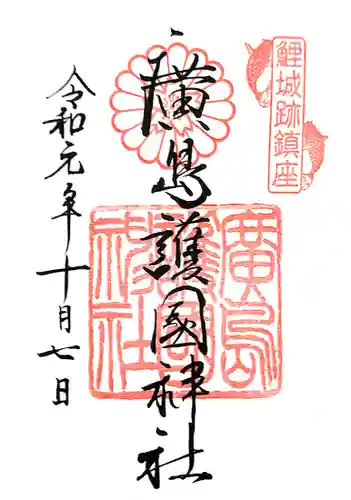 鯉城跡鎮座
廣島護國神社
廣島護國神社
令和元年十月七日